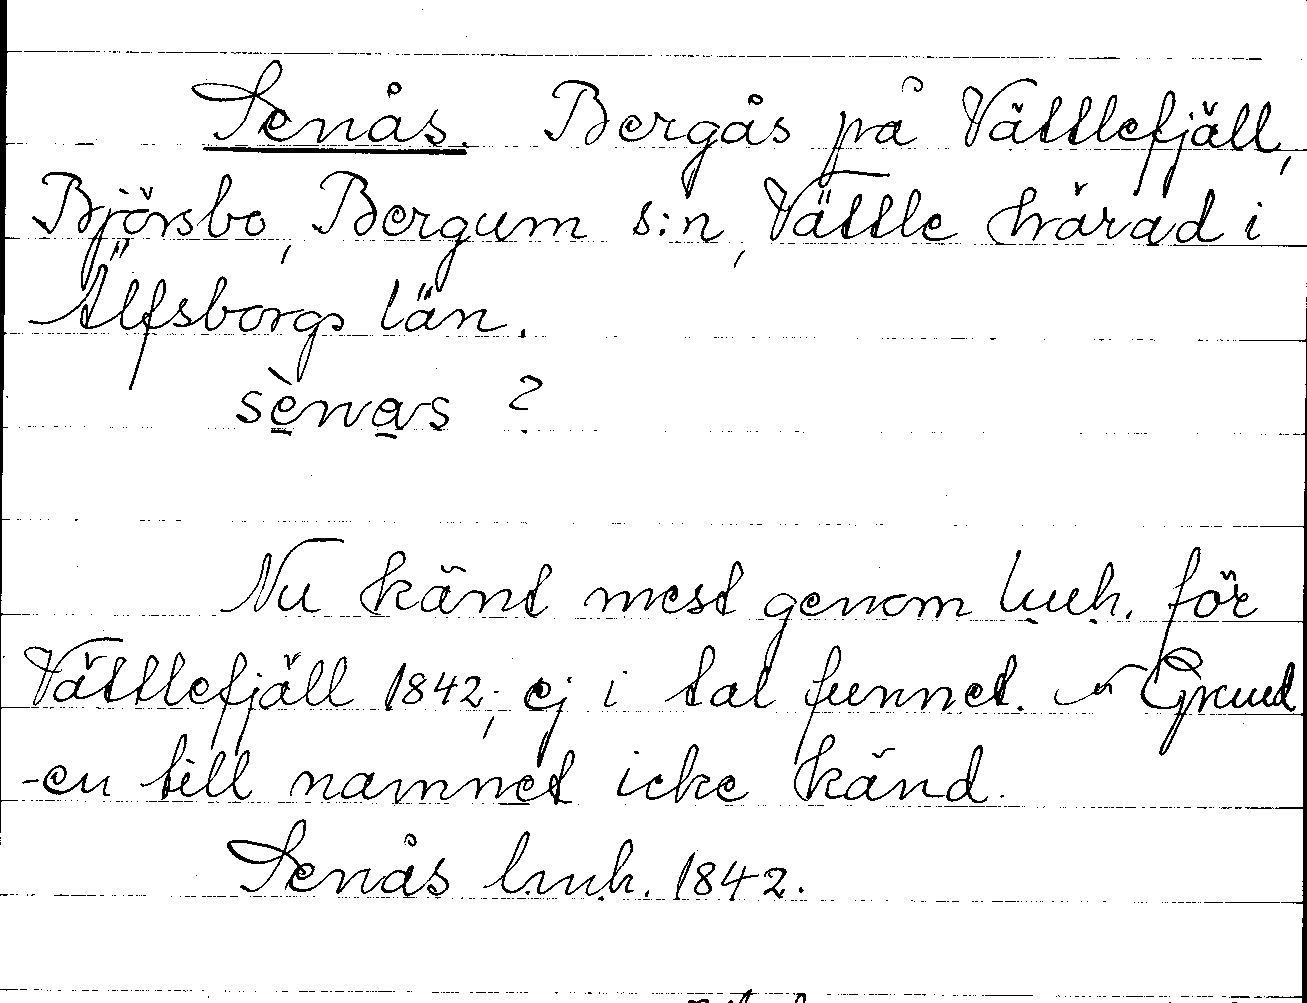 Senås. Bergås på Vättlefjäll,
Björsbo, Bergum s:n, Vättle härad i
Älfsborgs län.
sènas ?
Nu känt mest genom l.m.h. för
Vättlefjäll 1842; ej i tal funnet. Grund
-en till namnet icke känd.
Senås l.m.h. 1842.